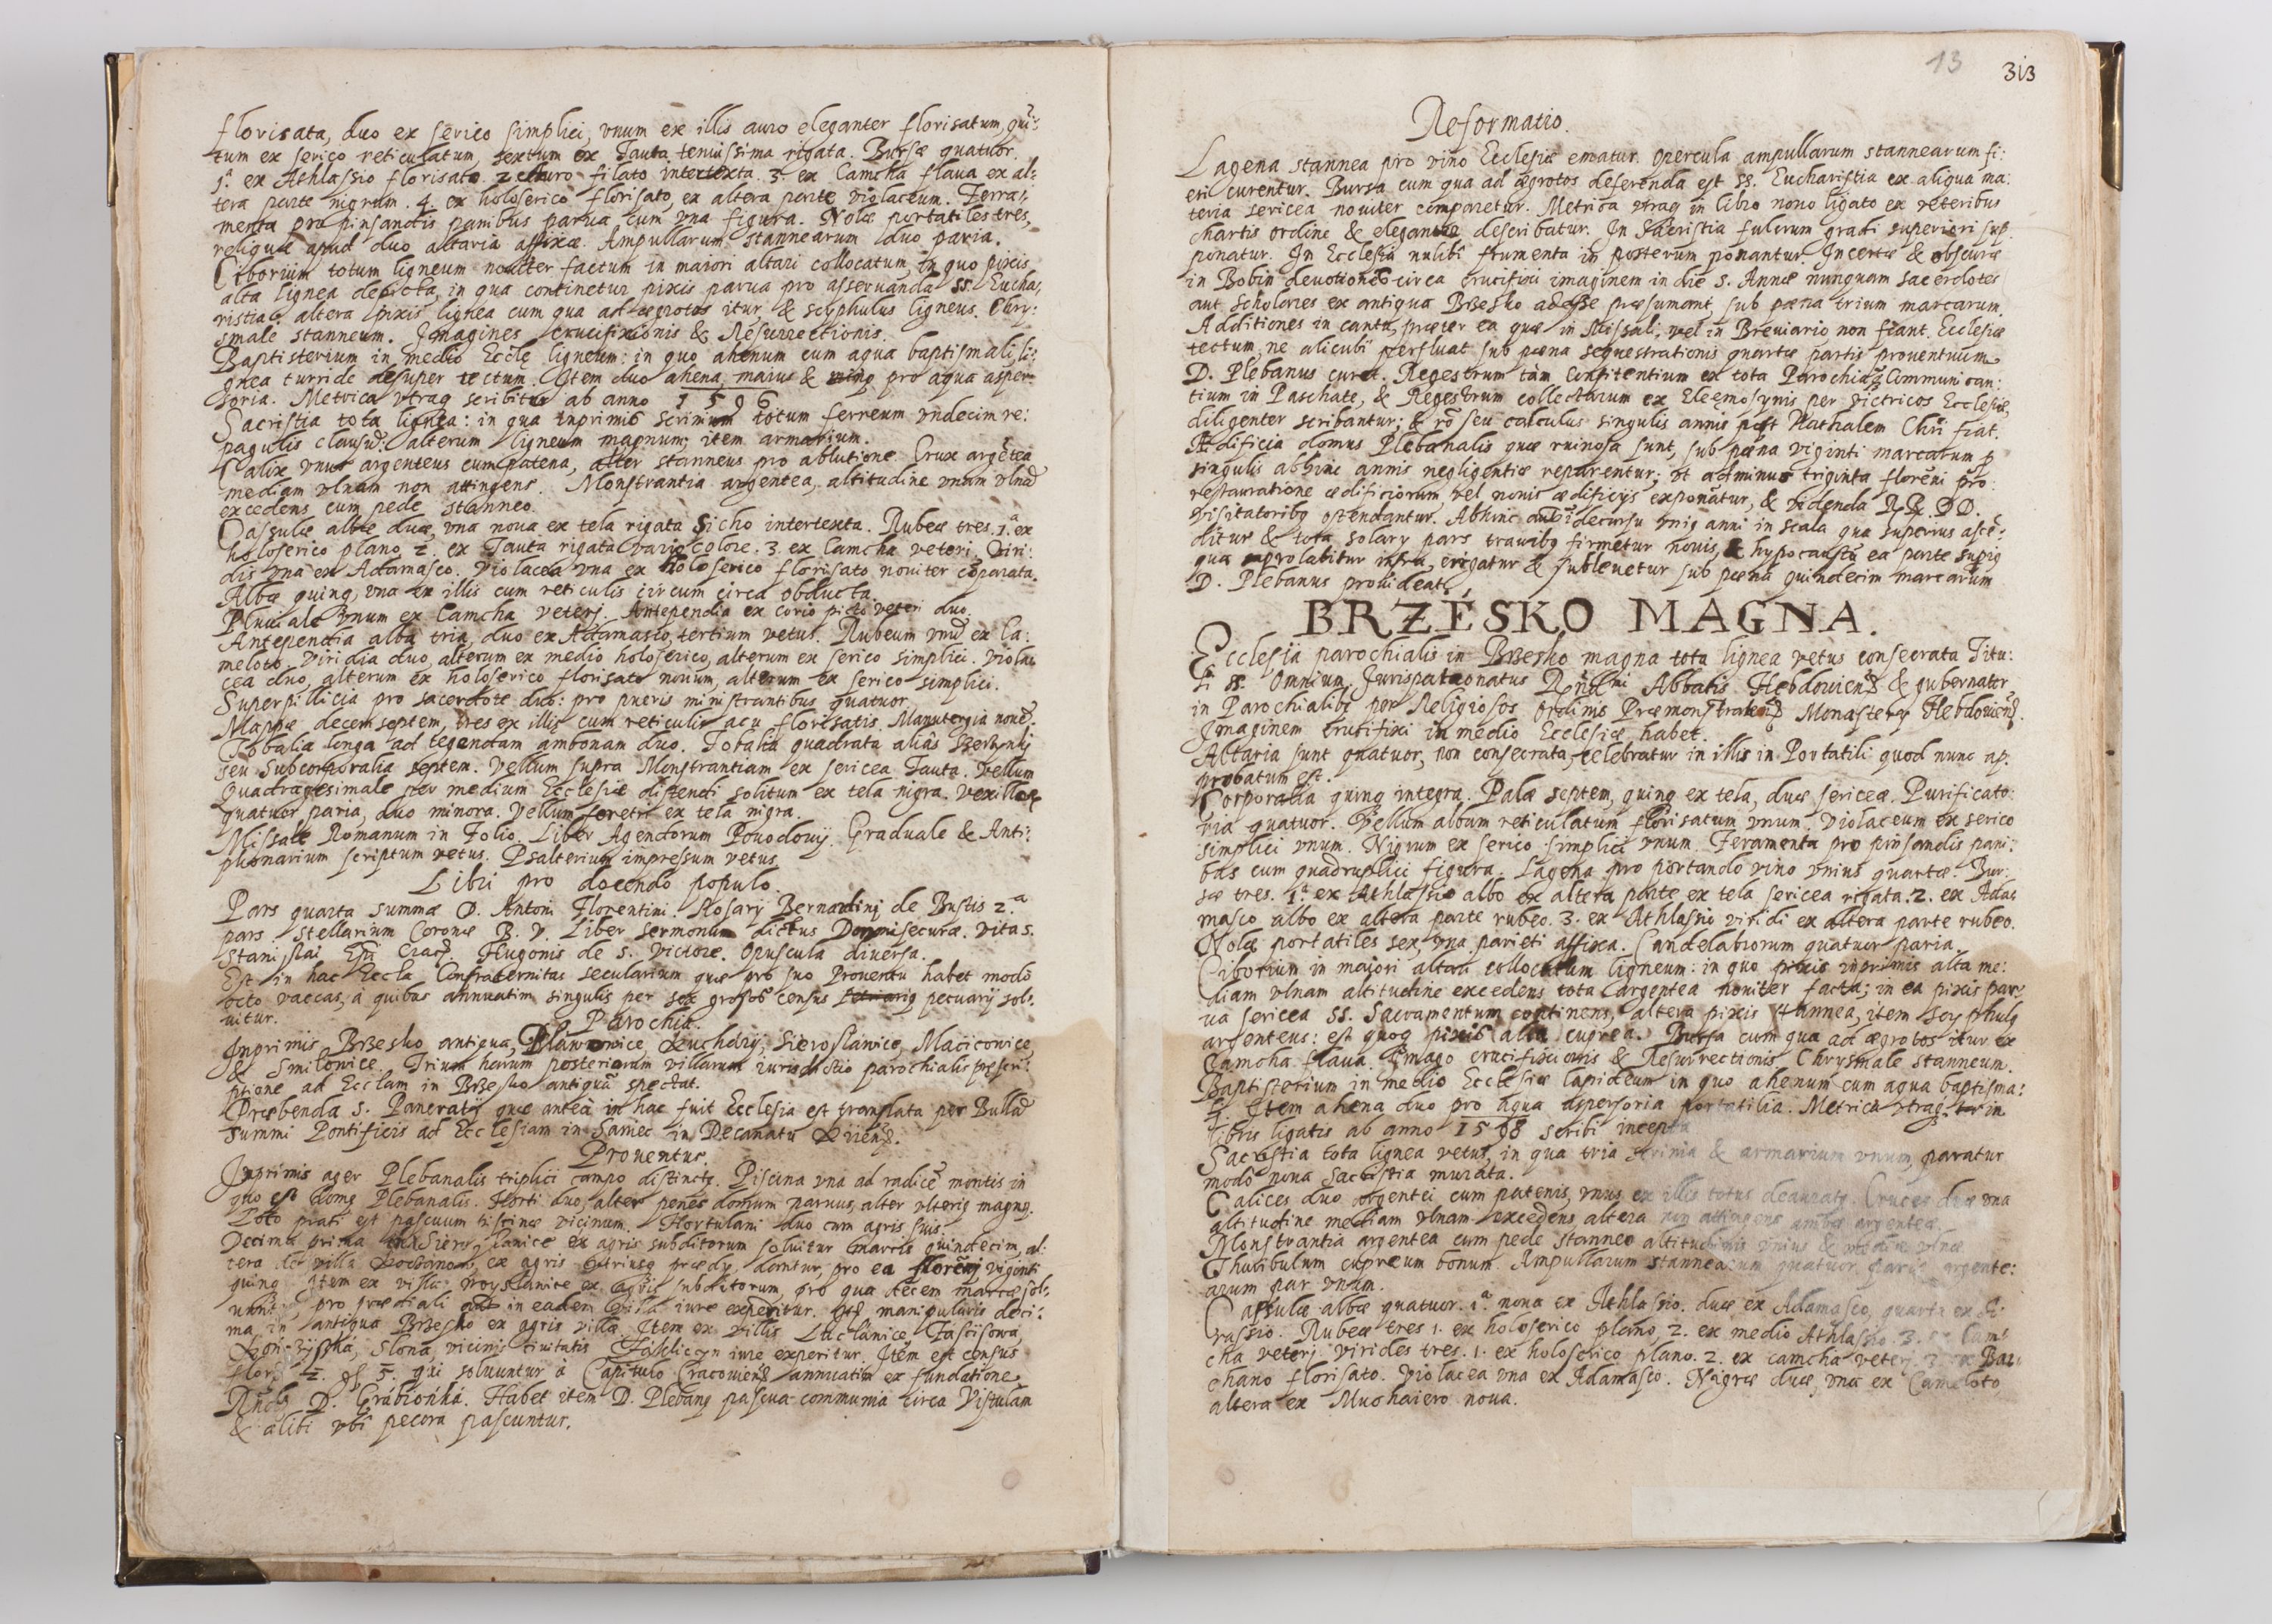 florisata, duo ex serico simplici, vnum ex illis auro eleganter florisatum, quī:
tum ex serico reticulatum, sextum ex Tauta tenuissima rigata. Bursæ quatuor.
1.ª ex Athlassio florisato. 2. auro filato intertexta. 3. ex Camcha flaua ex al:
tera parte nigrum. 4. ex holoserico florisato, ex altera parte violaceum. Ferra:
menta pro pinsandis panibus parua cum vna figura. Nolæ portatiles tres,
reliquæ apud duo altaria affixæ. Ampullarum stannearum duo paria.
Ciborium totum ligneum nouiter factum in maiori altari collocatum, in quo pixis
alta lignea depicta, in qua continetur pixis parua pro asseruanda SS. Eucha:
ristia, altera pixis lignea cum qua ad ægrotos itur, & scyphulus ligneus. Chry:
smale stanneum. Imagines Crucifixionis & Resurrectionis.
Baptisterium in medio Eccłę ligneum: in quo ahenum cum aqua baptismali, li:
gnea turride desuper tectum. Item duo ahena, maius & pro aqua asper
soria. Metrica vtraq scribitur ab anno 1596
Sacristia tota lignea: in qua inprimis scrinium totum ferreum vndecim re:
pagulis clausū: alterum ligneum magnum; item armarium.
Calix vnus argenteus cum patena, alter stanneus pro ablutione. Crux argētea
mediam vlnam non attingens. Monstrantia argentea, altitudine vnam vlnā
excedens cum pede stanneo.
Casulæ albæ duæ, vna noua ex tela rigata Sicho intertexta. Rubeæ tres. 1.ª ex
holoserico plano, 2. ex Tauta rigata vario colore. 3. ex Camcha veteri. Viri:
dis vna ex Adamasco. Violacea vna ex holoserico florisato nouiter cōparata.
Albæ quinq, vna ex illis cum reticulis circum circa obducta.
Pluuiale vnum ex Camcha veterj. Antependia ex corio picto veteri duo.
Antependia alba tria, duo ex Adamasco, tertium vetus. Rubeum vnū ex Ca:
meloto. Viridia duo, alterum ex medio holoserico, alterum ex serico simplici. Viola
cea duo, alterum ex holoserico florisato nouum, alterum ex serico simplici.
Superpillicia pro sacerdote duo: pro pueris ministrantibus quatuor.
Mappæ decem septem, tres ex illis cum reticulis acu florisatis. Manutergia nouē.
Tobalia longa ad tegendam ambonam duo. Tobalia quadrata aliâs
seu Subcorporalia septem. Vellum supra Monstrantiam ex sericea Tauta. Vellum
Quadragesimale per medium Ecclesiæ distendi solitum ex tela nigra. Vexillorū
quatuor paria, duo minora. Vellum feretri ex tela nigra.
Missale Romanum in Folio. Liber Agendorum Pouodouij. Graduale & Anti:
phonarium scriptum vetus. Psalterium impressum vetus.
Libri pro docendo populo.
Pars quarta summæ D. Antoni Florentini. Rosarij Bernardinj de Bustis 2.ª
pars. Stellarium Coronæ B. V. Liber sermonum dictus Dormisecuræ. Vita S.
Stanislai Hugonis de S. Victore. Opuscula diuersa.
Est in hac Eccla Confraternitas secularium quæ pro suo prouentu habet modo
octo vaccas, à quibus annuatim singulis per sex grossos census pecuarij sol:
uitur.
Parochia.
Inprimis Brzesko antiqua, Pławowice, Sierosławice, Macicowice
& Smilowice. Trium harum posteriorum villarum iurisdictio parochialis præscri:
ptione ad Ecclam in Brzesko antiquā spectat.
Præbenda S. Pancratij quæ anteà in hac fuit Ecclesia est translata per Bullā
Summi Pontificis ad Ecclesiam in in Decanatu
Prouentus.
Inprimis ager Plebanalis triplici campo distinctꝯ. Piscina vna ad radicē montis in
quo est domꝯ Plebanalis. Horti duo, alter penes domum paruus, alter vlterig magnꝯ.
Toto prati est pascuum piscinæ vicinum. Hortulani duo cum agris suis.
Decima prima in Sierosławice ex agris subditorum soluitur marcis quindecim, al:
tera de villa ex agris vtriusq prædij dantur, pro ea florenj viginti
quinq. Item ex villa ex agris subditorum, pro qua decem marcæ sol:
uunt pro prædiali in eadem villa iure experitur. manipularis deci:
ma in antiqua Brzesko ex agris villæ. Item ex villis
Słona, vicinis ciuitatis iure experitur. Item est census
flor. 2. gſ 5. qui soluuntur à Capitulo Cracouien annuatim ex fundatione
D. Grabionka. Habet item D. Plebanꝯ pascua communia circa Vistulam
& alibi vbi pecora pascuntur.
13
313
Reformatio.
Lagena stannea pro vino Ecclesiæ ematur. Opercula ampullarum stannearum fi:
eri curentur. Bursa cum qua ad ægrotos deferenda est SS. Eucharistia ex aliqua ma:
teria sericea nouiter comparetur. Metrica vtraq in libro nono ligato ex veteribus
chartis ordine & eleganter describatur. In Sacristia fulcrum gradi superiori sup:
ponatur. In Ecclesia nulibi frumenta in posterum ponantur. Incertæ & obscuræ
in Bobin deuotiones circa crucifixi imaginem in die S. Annæ nunquam sacerdotes
aut scholares ex antiqua Brzesko adesse præsumant, sub pœna trium marcarum.
Additiones in cantu, præter ea quæ in Missali, vel in Breuiario non fiant. Ecclesiæ
tectum, ne alicubi perfluat sub pœna sequestrationis quartæ partis prouentuum
D. Plebanus curet. Regestrum tàm Confitentium ex tota Parochia, Communican:
tium in Paschate, & Regestrum collectarum ex Eleęmosynis per victricos Ecclesiæ,
diligenter scribantur; & rō seu calculus singulis annis post Nathalem Chri fiat.
Ædificia domus Plebanalis quæ ruinosa sunt, sub pœna viginti marcarum ꝓ
singulis abhinc annis negligentiæ reparentur; vt adminus triginta floreni pro
restauratione ædificiorum, vel nouis ædificijs exponātur, & videnda RR. DD.
Visitatoribꝯ ostendantur. Abhinc decursu vniꝯ anni in scala qua superius ascē:
ditur & tota solarij pars trauibꝯ firmetur nouis, & hypocaustū ea parte
qua prolabitur infra, erigatur & subleuetur sub pœna quindecim marcarum
D. Plebanus prouideat.
BRZESKO MAGNA.
Ecclesia parochialis in Brzesko magna tota lignea vetus consecrata Titu:
li SS. Omnium. Jurispatronatus Rndmi Abbatis Hebdouien & gubernatur
in Parochialibꝯ per Religiosos Ordinis Præmonstraten Monasterij Hebdouien.
Imaginem crucifixi in medio Ecclesiæ habet.
Altaria sunt quatuor, non consecrata, celebratur in illis in Portatili quod nunc ap:
probatum est.
Corporalia quinq integra. Palæ septem, quinq ex tela, duæ sericeæ. Purificato:
ria quatuor. Vellum album reticulatum florisatum vnum. Violaceum ex serico
simplici vnum. Nigrum ex serico simplici vnum. Feramenta pro pinsandis pani:
bus cum quadruplici figura. Lagena pro portando vino vnius quartæ. Bur:
sæ tres. 1.ª ex Athlassio albo ex altera parte ex tela sericea rigata. 2. ex Ada
masco albo ex altera parte rubeo. 3. ex Athlassio viridi ex altera parte rubeo.
Nolæ portatiles sex, vna parieti affixa. Candelabrorum quatuor paria.
Ciborium in maiori altari collocatum ligneum: in quo pixis inprimis alta me:
diam vlnam altitudine excedens tota argentea nouiter facta; in ea pixis par
ua sericea SS. Sacramentum continens, altera pixis stannea, item scyphulꝯ
argenteus: est quoq pixis alia cuprea. Bursa cum qua ad ægrotos itur ex
Camcha flaua. Imago crucifixionis & Resurrectionis. Chrysmale stanneum.
Baptisterium in medio Ecclesiæ lapideum in quo ahenum cum aqua baptisma:
li. Item ahena duo pro aqua aspersoria portatilia. Metrica vtraq in
libris ligatis ab anno 1598 scribi incepta
Sacristia tota lignea vetus, in qua tria scrinia & armarium vnum, paratur
modo noua Sacristia murata.
Calices duo argentei cum patenis, vnus ex illis totus deauratꝯ. Cruces duæ vna
altitudine mediam vlnam excedens, altera non attingens ambæ argenteæ.
Monstrantia argentea cum pede stanneo altitudinis vnius & mediæ vlnæ
Thuribulum cupreum bonum. Ampullarum stannearum quatuor paria, argente:
arum par vnum.
Casulæ albæ quatuor. 1.ª noua ex Athlassio. duæ ex Adamasco, quarta ex
Rubeæ tres 1. ex holoserico plano, 2. ex medio Athlassio. 3. ex Cam:
cha veterj. Virides tres. 1. ex holoserico plano. 2. ex camcha veterj. 3. ex
chano florisato. Violacea vna ex Adamasco. Nigræ duæ, vna ex Cameloto
altera ex Muchaiero noua.